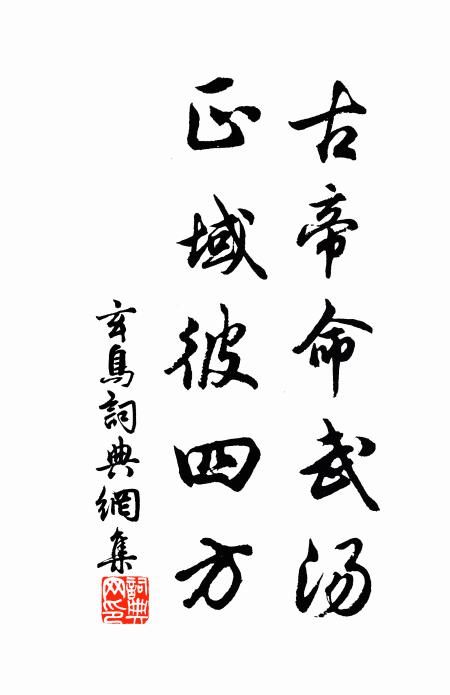 古帝命武汤
正域彼四方
玄鳥詞典網集
詞典
网印